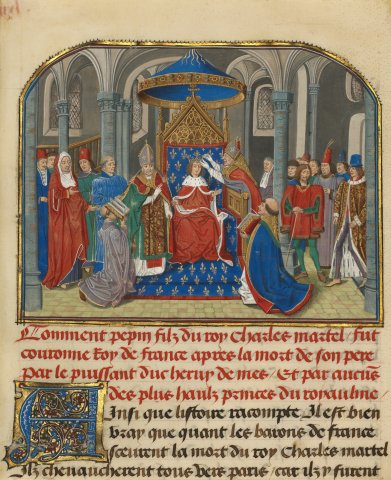 Comment pepin filz du roy Charles martel / fut
couronne Roy de france apres la mort de son pere
Par le puissant duc heruy de mes / Et par aucuns
des plus haulz princes du royaulme
Ainsi que listoire racompte Il est bien
vray que quant les barons de france
sceurent la mort du roy Charles martel
Ilz cheuaucherent tous vers paris / car il y furent